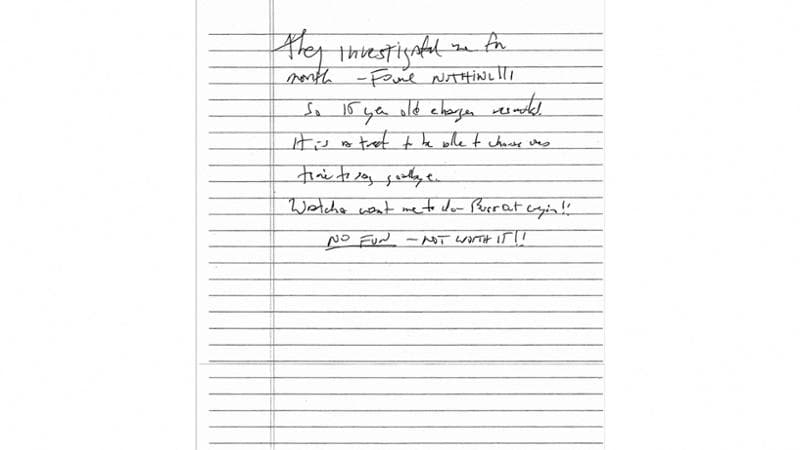 They investigated me for
month — Found NOTHING!!!
So 15 year old charges
It is a treat to be able to choose ones
time to say goodbye.
Watcha want me to do — Burst out crying!!
NO FUN — NOT WORTH IT!!